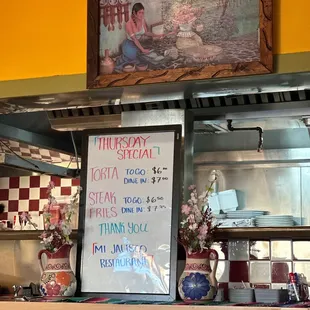 THURSDAY
SPECIAL
TORTA TO GO: $6
DINE IN: $7
STEAK TO GO: $6
FRIES DINE IN: $7
THANK YOU
MI JALISCO
RESTAURANT